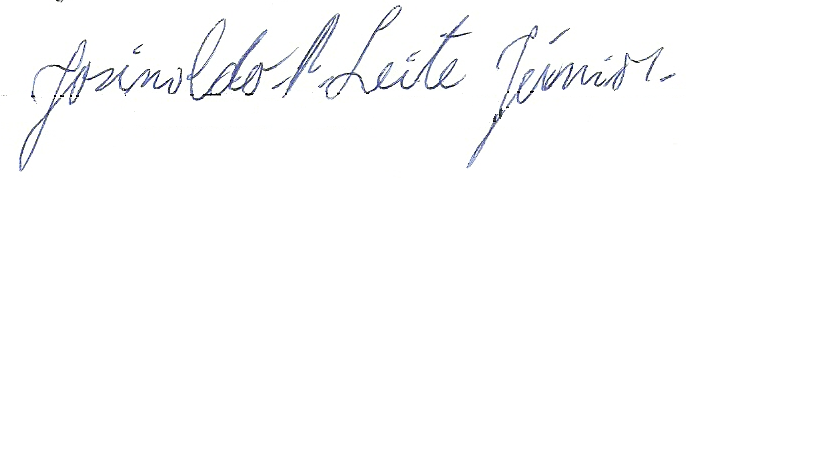 Josinoldo P. Leite Júnior.